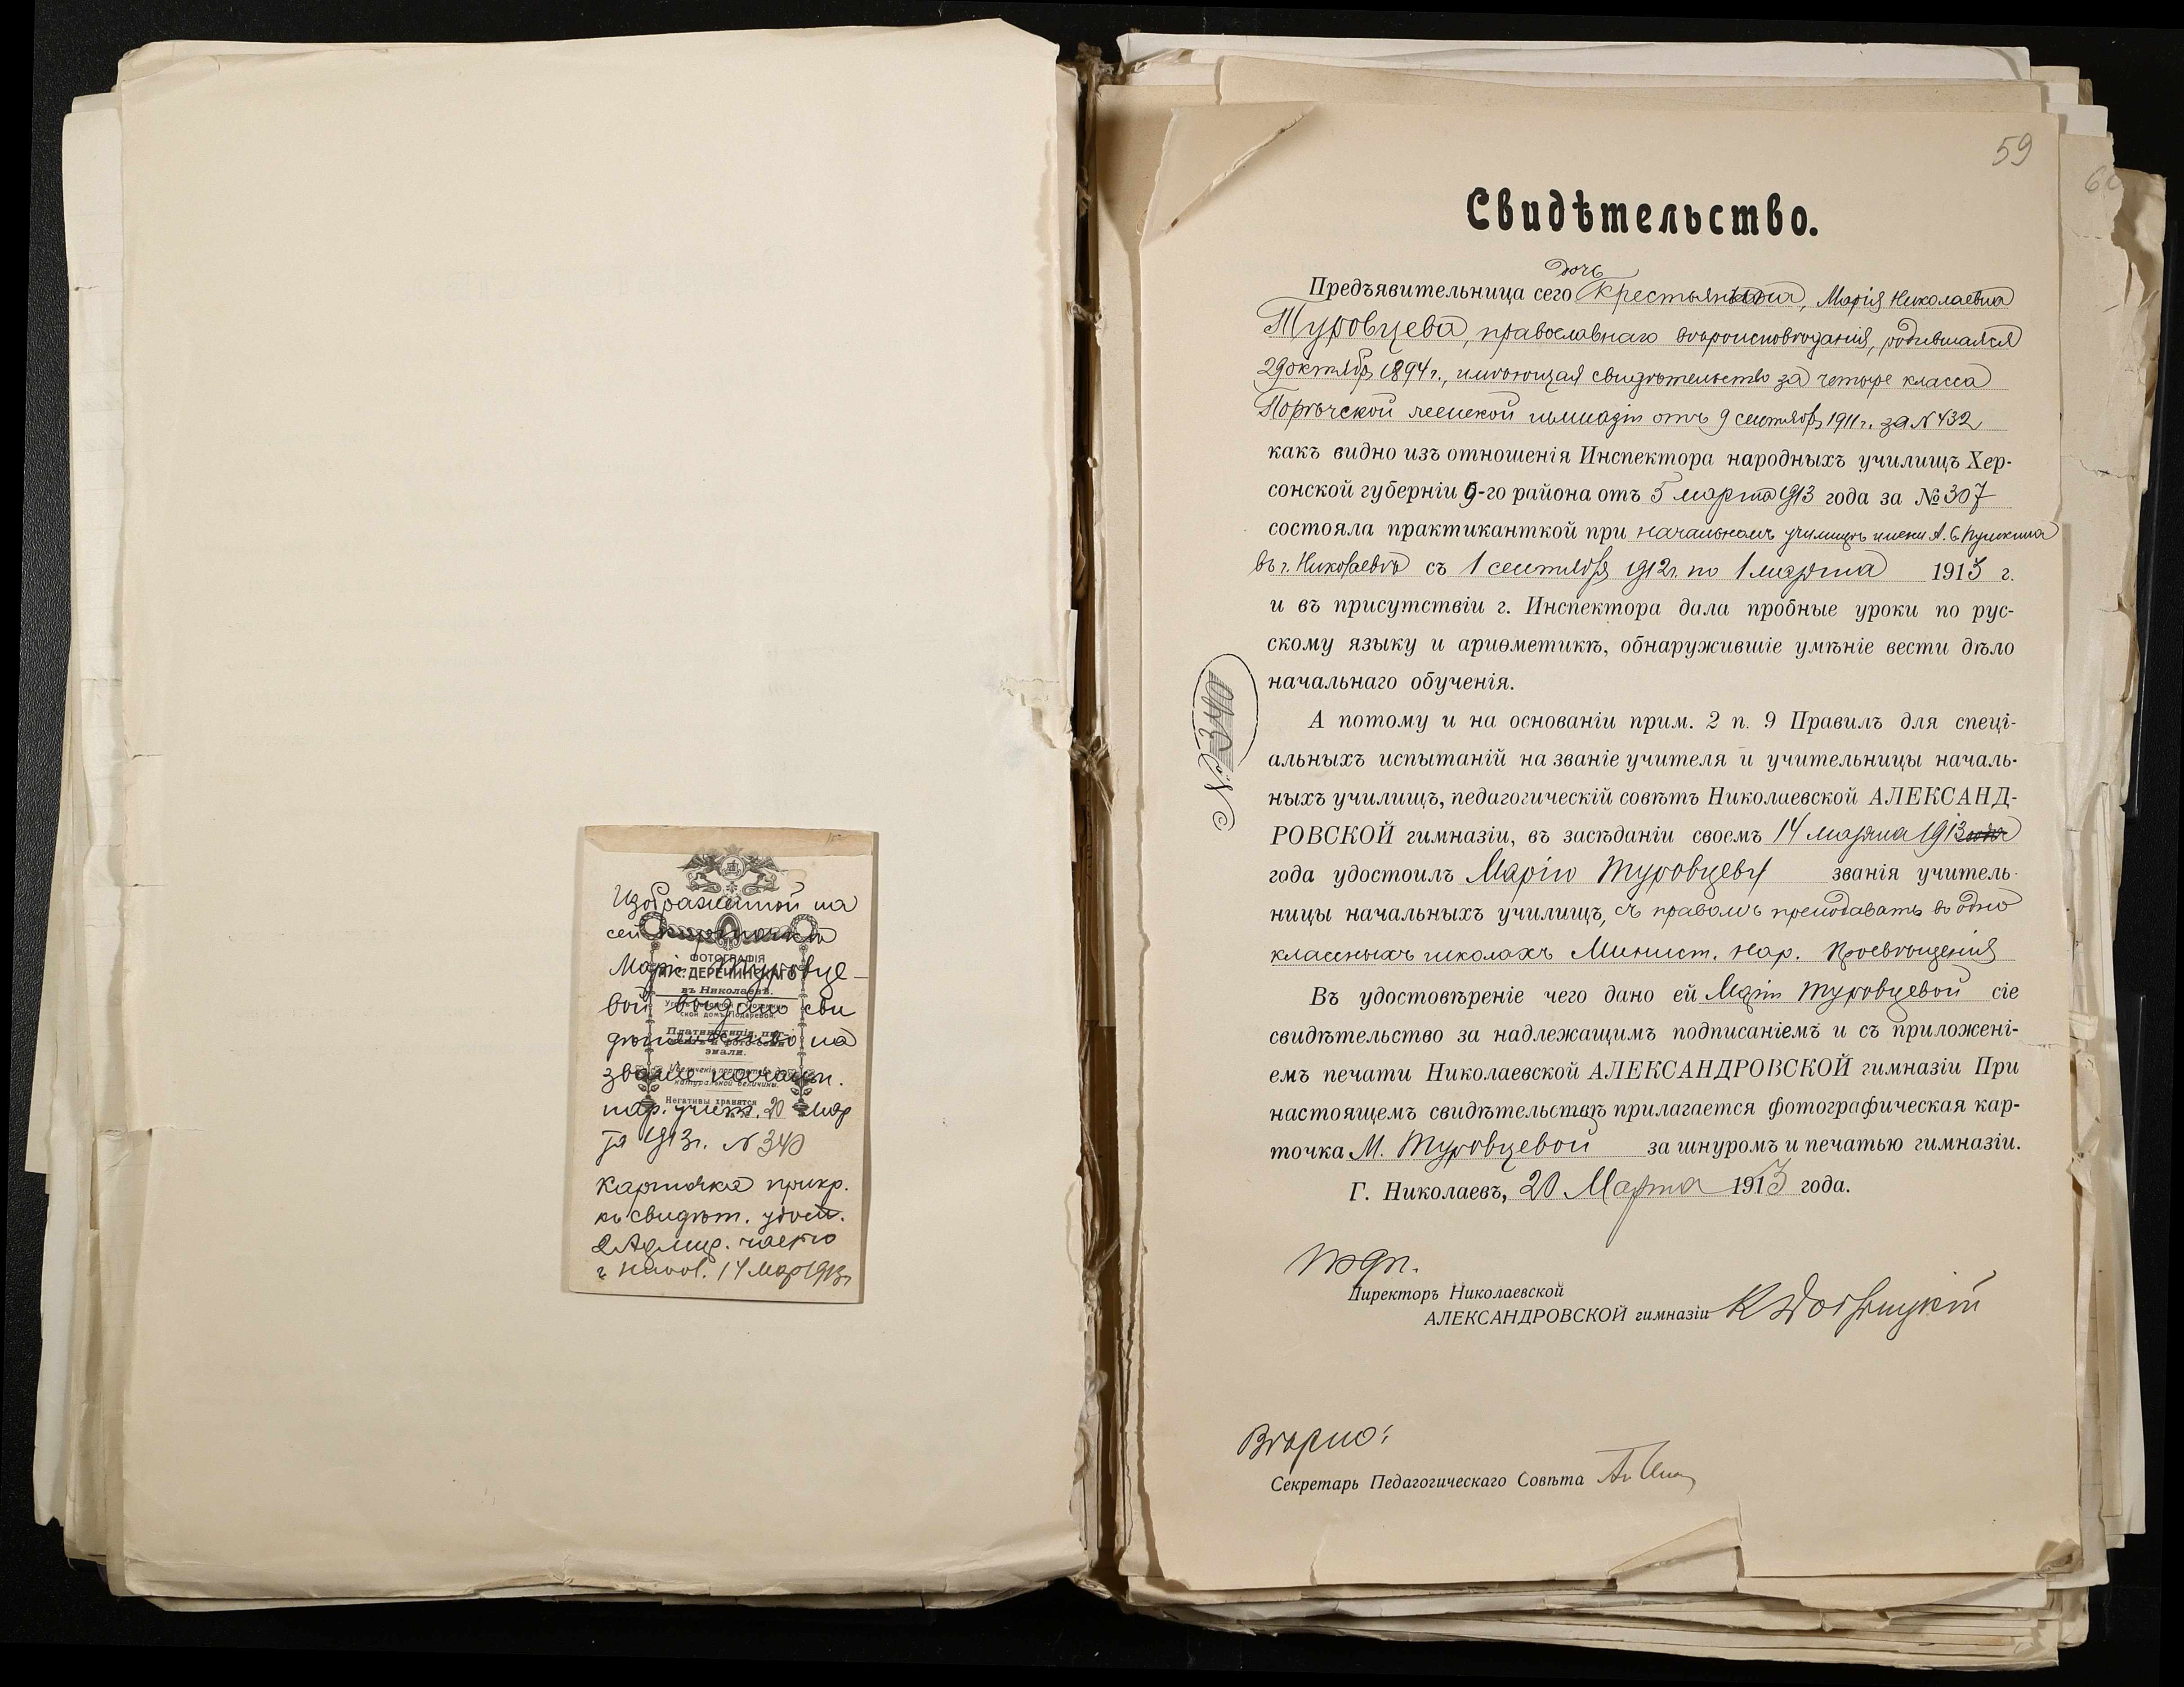 Изображенной на
сей карточкѣ
ФОТОГРАФІЯ
ДЕРЕЧИНСКАГО
въ Николаевѣ.
Маріи Туровце-
вой выдано сви
дѣтельство на
эмали.
натуральной величины.
званіе начальн.
Негативы хранятся
нар. учит. 20 Мар
та 1913 г. № 340
Карточка прикр.
къ свидѣт. удост.
2 Адмир. частью
г. Никол. 14 Мар 1913 г.
59
60
Свидѣтельство.
дочь
Предъявительница сего крестьянина, Марія Николаевна
Туровцева, православнаго вѣроисповѣданія, родившаяся
29 октября 1894 г., имѣющая свидѣтельство за четыре класса
женской гимназіи отъ 9 сентября 1911 г. за № 432
какъ видно изъ отношенія Инспектора народныхъ училищъ Хер-
сонской губерніи 9-го района отъ 5 марта 1913 года за № 307
состояла практиканткой при начальномъ училищѣ имени А. С. Пушкина
въ г. Николаевѣ съ 1 сентября 1912 г. по 1 марта 1913 г.
и въ присутствіи г. Инспектора дала пробные уроки по рус-
скому языку и ариѳметикѣ, обнаружившіе умѣніе вести дѣло
начальнаго обученія.
№ 340
А потому и на основаніи прим. 2 п. 9 Правилъ для спеці-
альныхъ испытаній на званіе учителя и учительницы началь-
ныхъ училищъ, педагогическій совѣтъ Николаевской АЛЕКСАНД-
РОВСКОЙ гимназіи, въ засѣданіи своемъ 14 марта 1913 года
года удостоилъ Марію Туровцеву званія учитель-
ницы начальныхъ училищъ, съ правомъ преподавать въ одно
классныхъ школахъ Минист. Нар. Просвѣщенія
Въ удостовѣреніе чего дано ей Маріи Туровцевой сіе
свидѣтельство за надлежащимъ подписаніемъ и съ приложені-
емъ печати Николаевской АЛЕКСАНДРОВСКОЙ гимназіи При
настоящемъ свидѣтельствѣ прилагается фотографическая кар-
точка М. Туровцевой за шнуромъ и печатью гимназіи.
Г. Николаевъ, 20 Марта 1913 года.
Директоръ Николаевской
АЛЕКСАНДРОВСКОЙ гимназіи
Вѣрно:
Секретарь Педагогическаго Совѣта